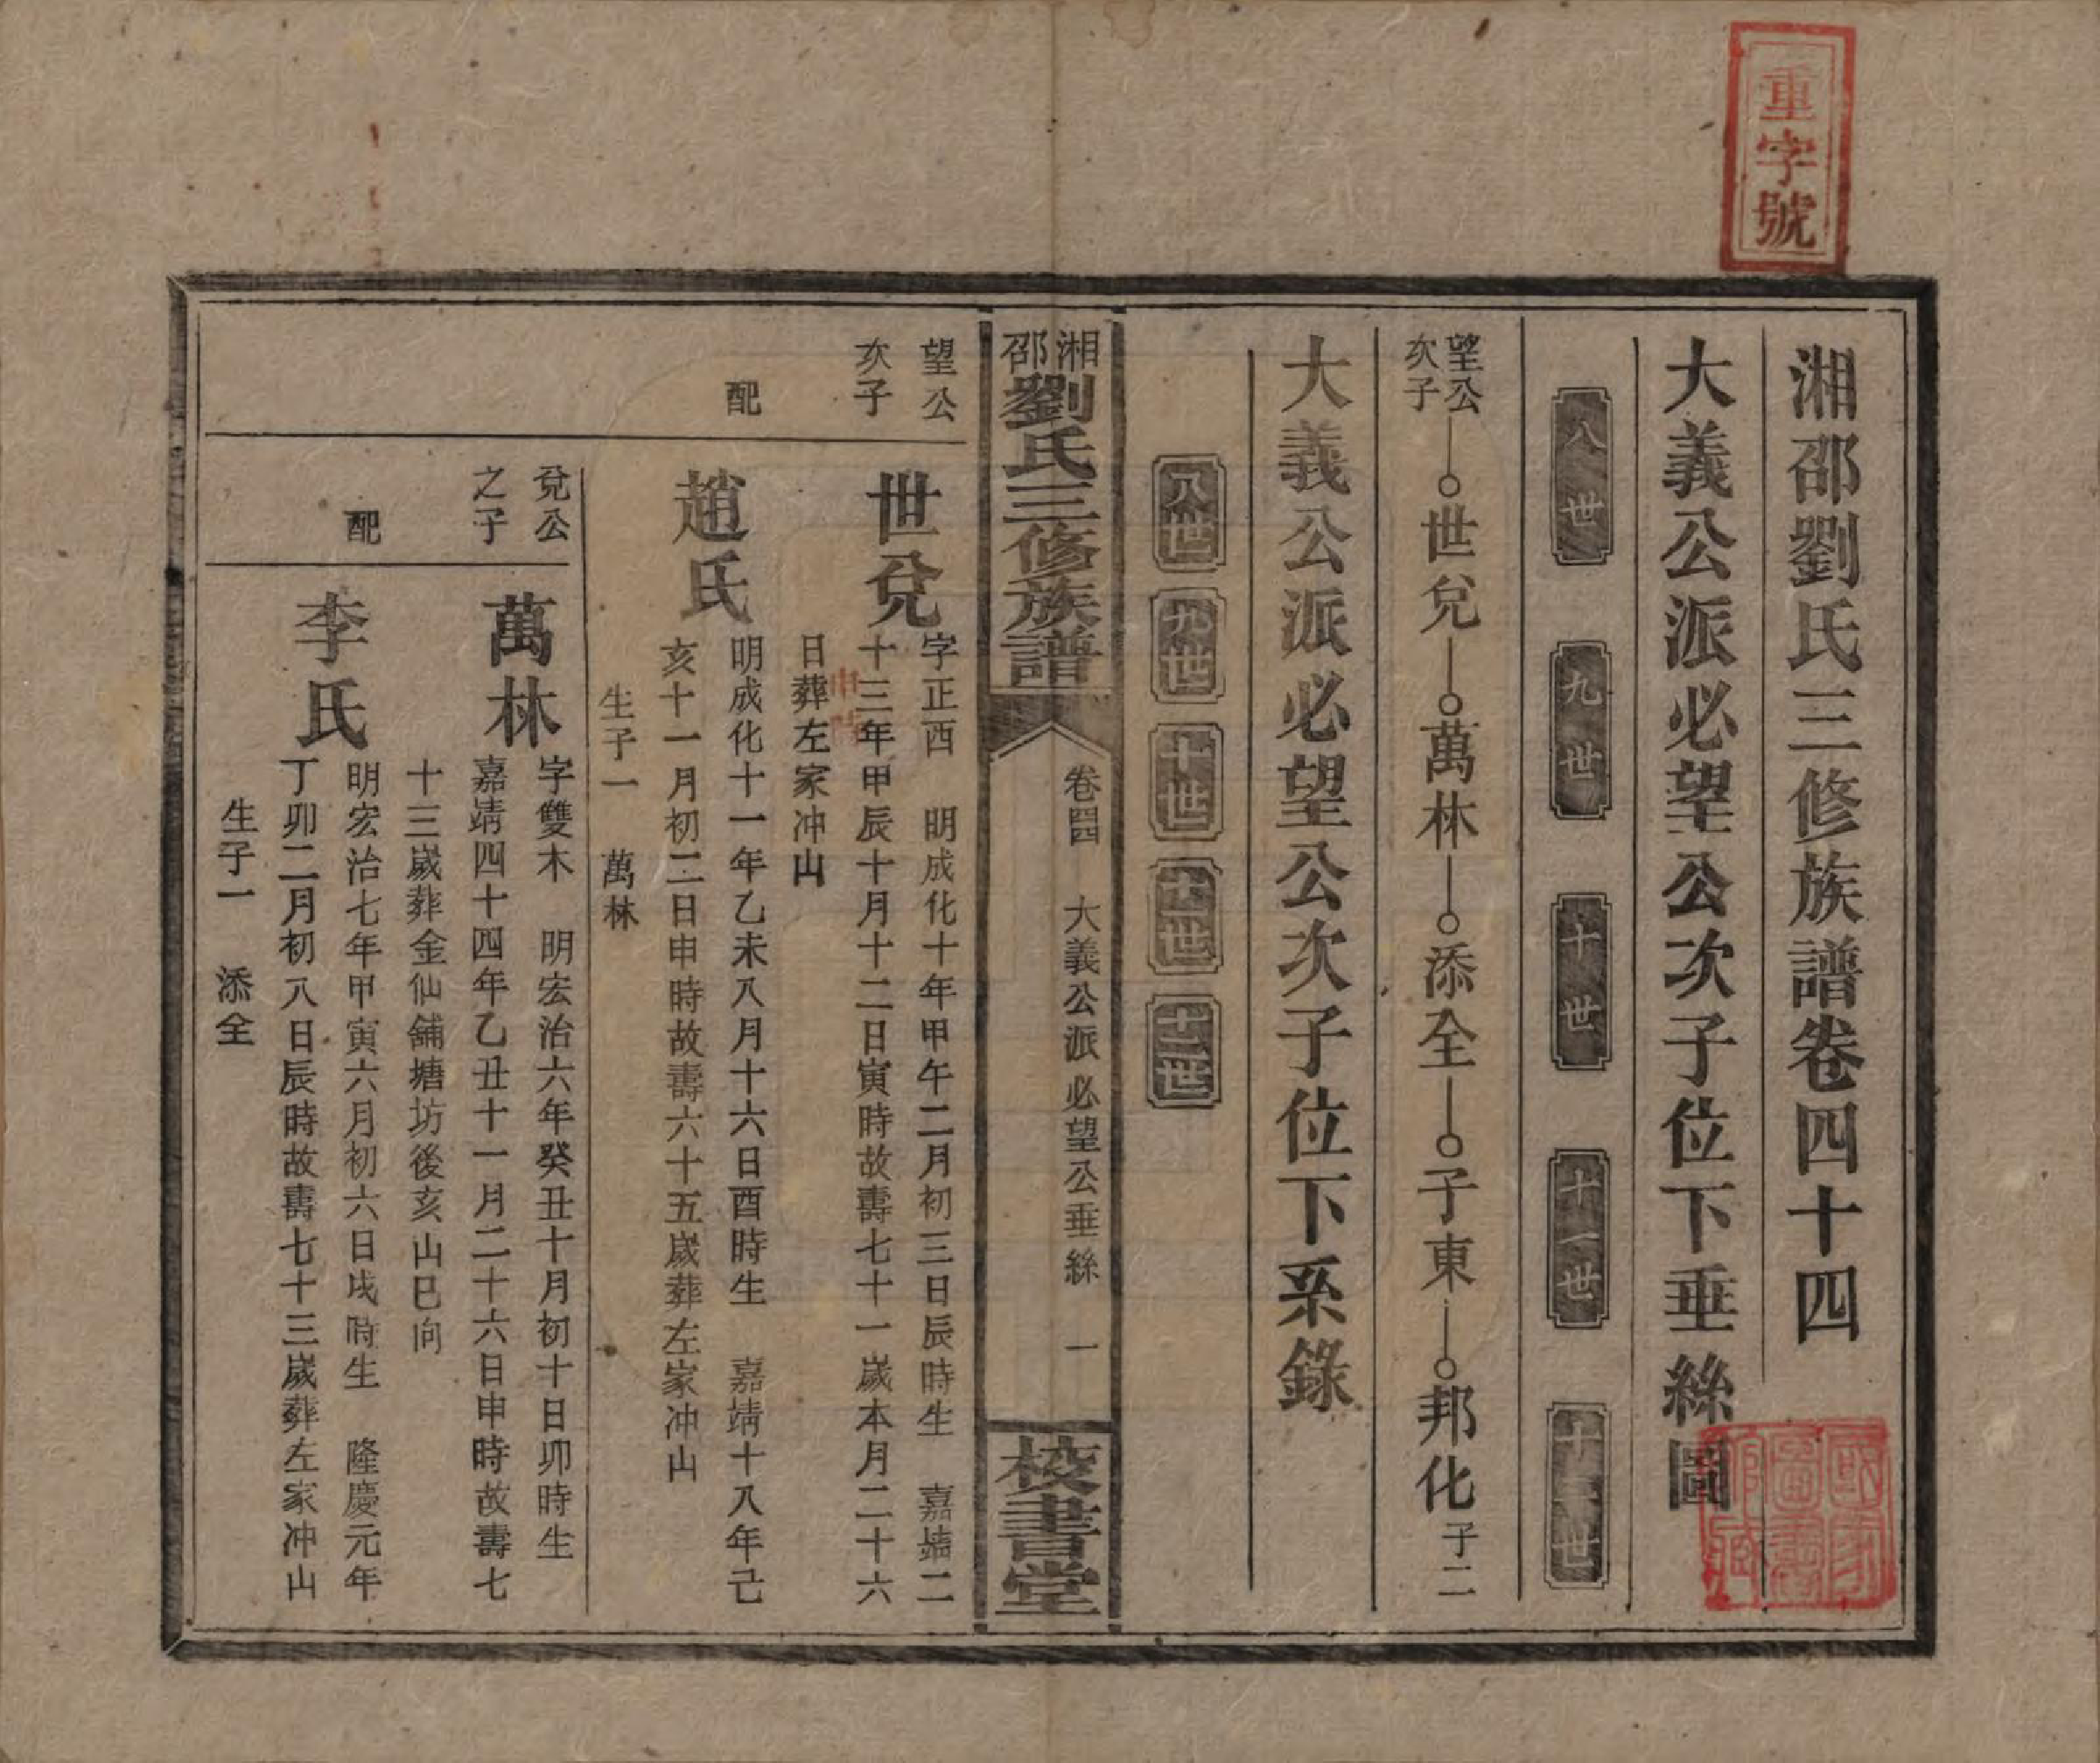 重字號
湘邵劉氏三修族譜卷四十四
大義公派必望公次子位下垂絲圖
八世 九世 十世 十一世 十二世
望公次子 世兌 萬林 添全 子東 邦化 子二
大義公派必望公次子位下系錄
八世 九世 十世 十一世 十二世
湘邵劉氏三修族譜 卷四四 大義公派必望公垂絲 一 校書堂
望公
次子
世兌
字正西 明成化十年甲午二月初三日辰時生 嘉靖二
十三年甲辰十月十二日寅時故壽七十一歲本月二十六
日葬左家冲山
申時
配
趙氏
明成化十一年乙未八月十六日酉時生 嘉靖十八年己
亥十一月初二日申時故壽六十五歲葬左家冲山
生子一 萬林
兌公
之子
萬林
字雙木 明宏治六年癸丑十月初十日卯時生
嘉靖四十四年乙丑十一月二十六日申時故壽七
十三歲葬金仙舖塘坊後亥山巳向
配
李氏
明宏治七年甲寅六月初六日戌時生 隆慶元年
丁卯二月初八日辰時故壽七十三歲葬左家冲山
生子一 添全
國家
圖書
館藏